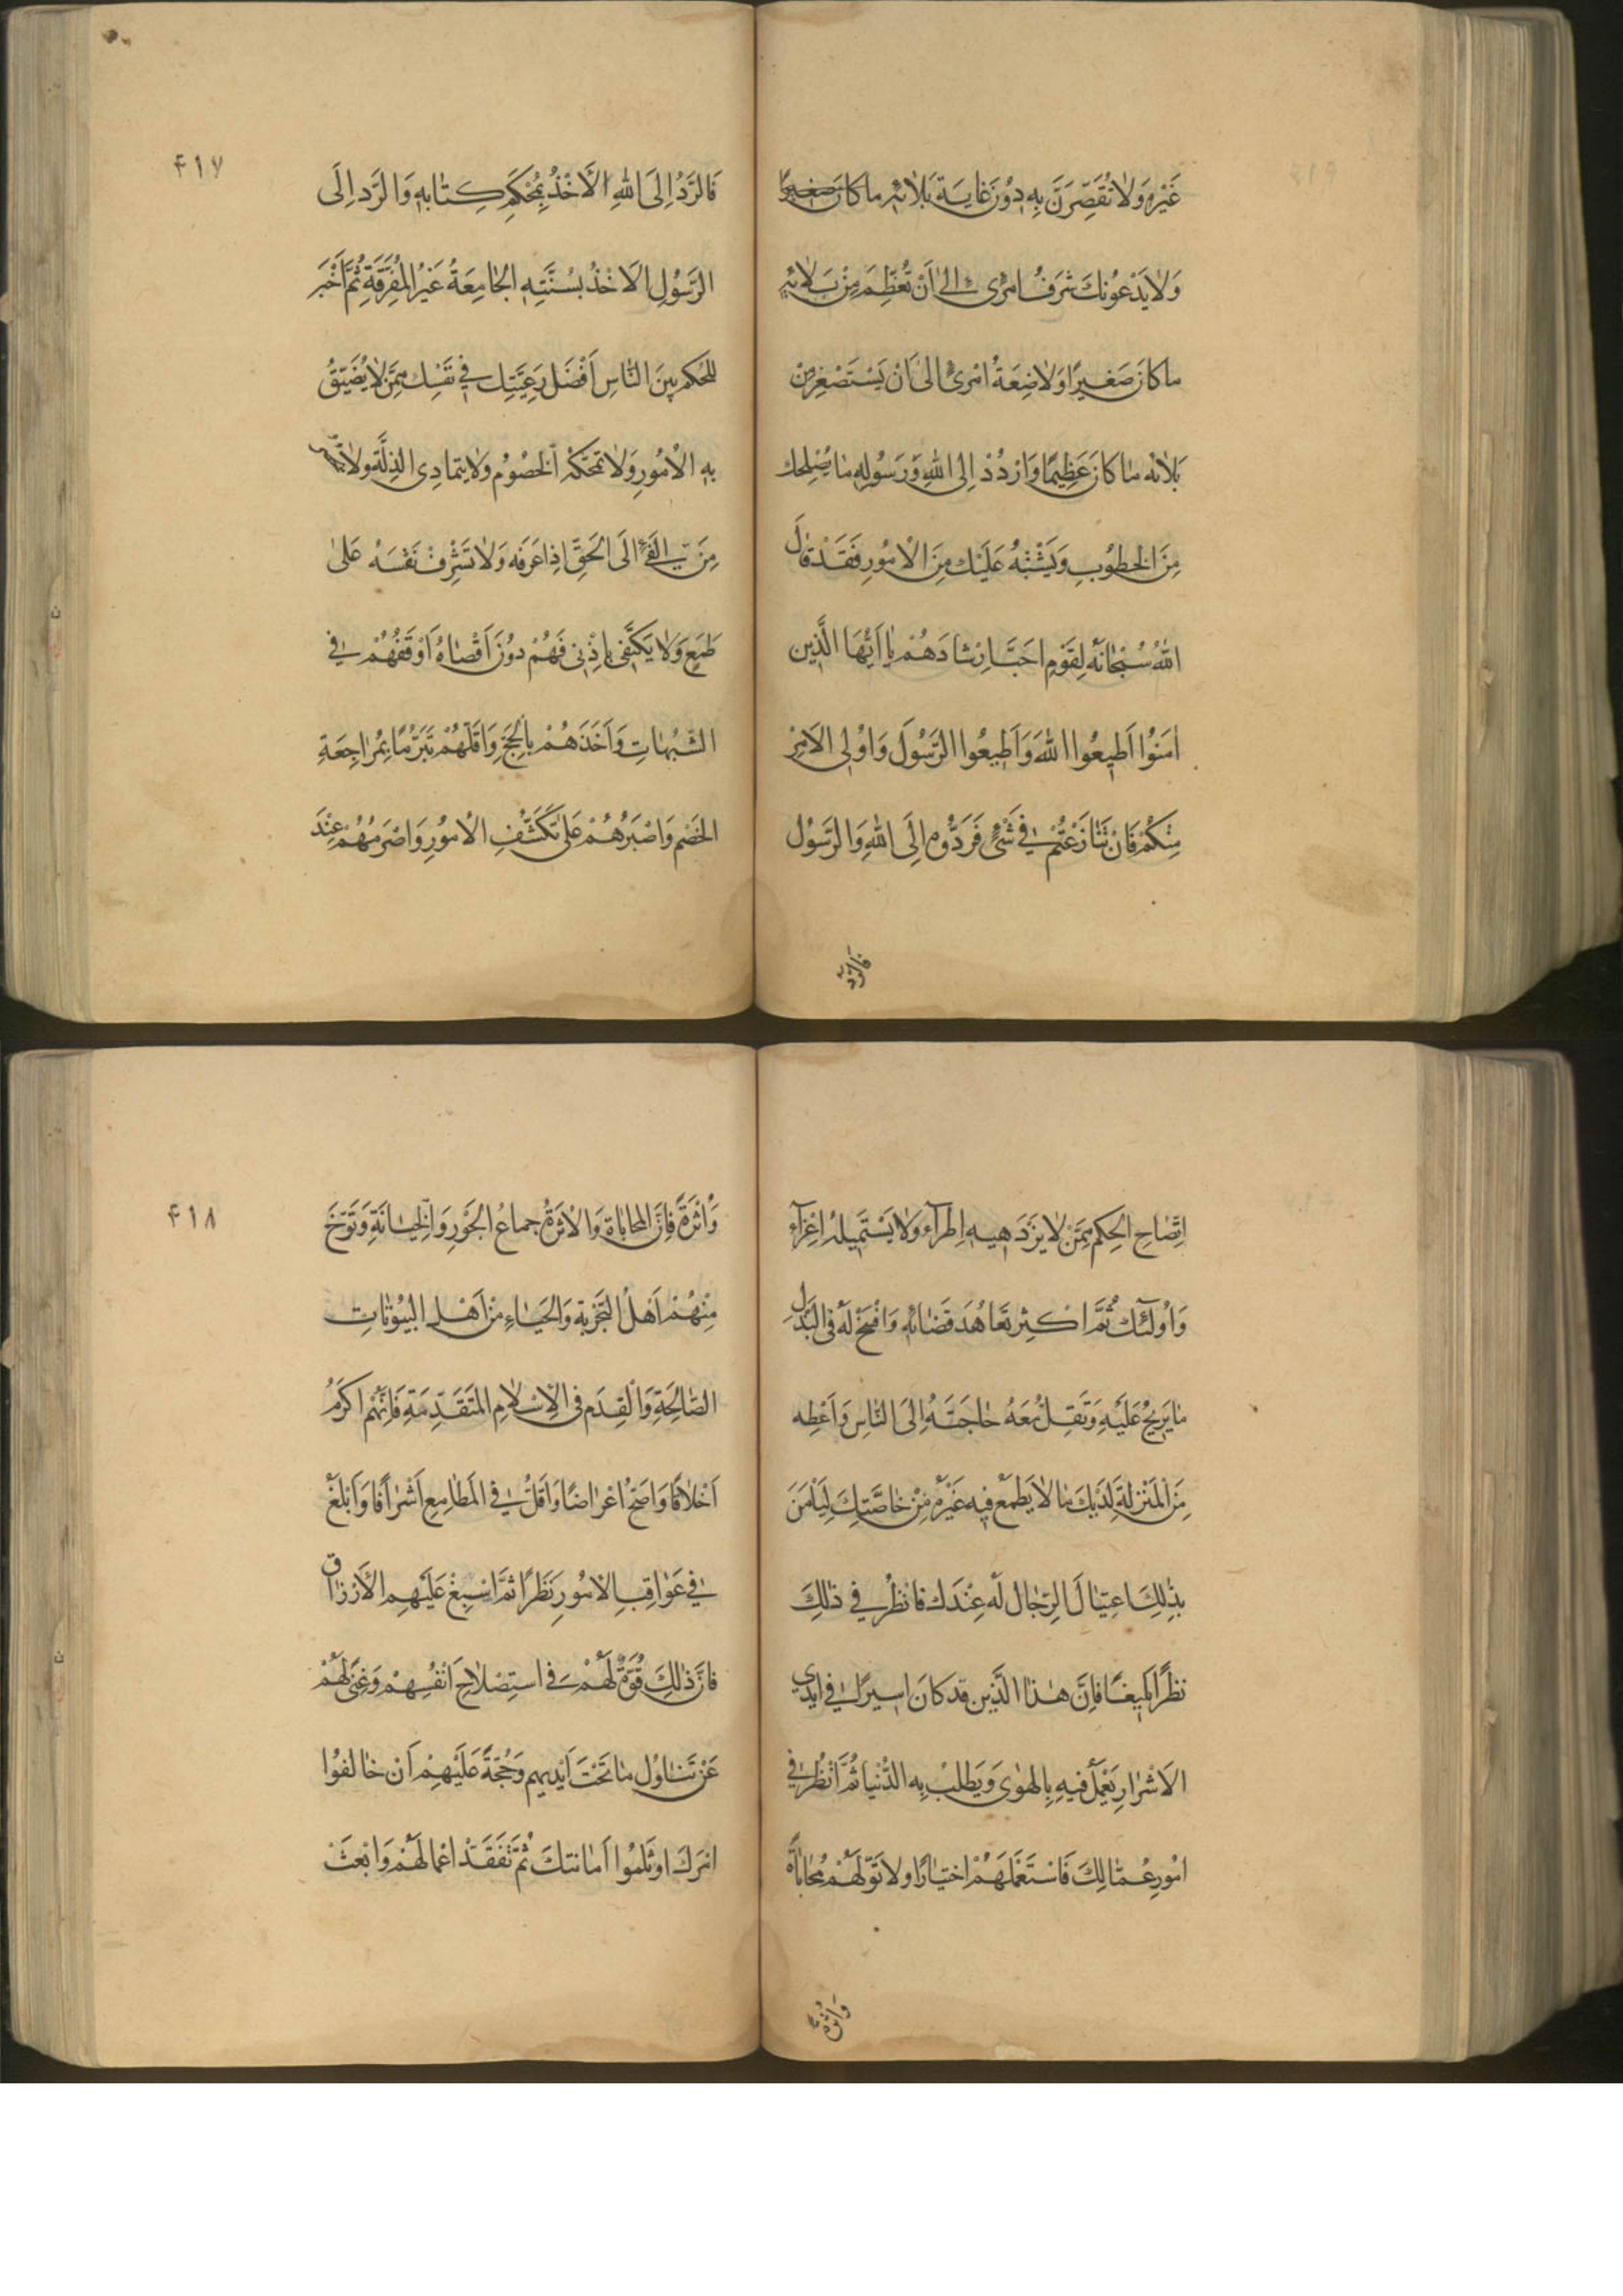 غَيْرِهِ وَلاٰ تُقَصِّرَنَّ بِهِ دُونَ غٰايَةِ بَلاٰئِهِ ما كانَ صَغيرًا
وَلاٰ يَدْعُوَنَّكَ شَرَفُ امْرِئٍ اِلىٰ اَنْ تُعَظِّمَ مِنْ بَلاٰئِهِ
ما كانَ صَغيرًا وَلاٰ ضِعَةُ امْرِئٍ الىٰ اَنْ يَسْتَصْغِرَ مِنْ
بَلاٰئِه مٰا كانَ عَظِيمًا وَارْدُدْ اِلى اللهِ وَرَسُولِهِ مٰا يُضْلِعُكَ
مِنَ الخُطُوبِ وَيَشْتَبِهُ عَلَيْكَ مِنَ الْاُمُورِ فَقَدْ قٰالَ
اللهُ سُبْحٰانَهُ لِقَوْمٍ احَبَّ اِرْشٰادَهُمْ يٰا اَيُّهَا الَّذِين
اٰمَنُوا اَطيعُوا اللهَ وَاَطيعُوا الرَّسُولَ وَاُوْلِى الاَمْرِ
مِنْكُمْ فَاِنْ تَنٰازَعْتُمْ فى شَىْءٍ فَرَدُّوهُ اِلَى اللهِ وَالرَّسُول
فالرّدّ
٤١٧
فَالرَّدُّ اِلَى اللهِ الْاَخْذُ بِمُحْكَمِ كِتٰابِهِ وَالرَّد اِلَى
الرَّسُولِ الاَخْذُ بِسُنَّتِهِ الجٰامِعَةُ غَيْرُ المُفَرِّقَةِ ثُمَّ اَخْبَر
لِلحُكْمِ بينَ النّاسِ اَفْضَلَ رَعِيَّتِك فى نَفْسِك مِمَّن لاٰ يُضَيّقُ
بِهِ الاُمُورِ وَلاٰ تَمَحَّكَهُ الخُصُومُ وَلاٰ يتمادِى الذِلّة ولاٰ
مِنَ الفَئِ الَى الحَقِّ اِذا عَرَفَه وَلاٰ تَشْرِفْ نَفْسَهُ عَلىٰ
طَمَعٍ وَلاٰ يَكتَفى باِدْنى فَهُمْ دُونَ اَقْصٰاهُ اَوْقَفُهُمْ فى
الشّبُهٰاتِ وَاَخَذَهُمْ بالحُجَجِ وَاَقَلّهُمْ تَبَرُّمًا بِمُرٰاجِعَةِ
الخَصْمِ وَاصْبَرُهُمْ عَلىٰ تَكَشّفِ الاُمُورِ وَاصْرَمُهُمْ عِنْدَ
اِتّضٰاحِ الحِكم مِمَّنْ لاٰ يَزْدَهيهِ اِطْرآء وَلاٰ يَسْتَميلهُ اغْرآء
وَاُولٰئِكَ ثُمَّ اكثِر تَعاهُدَ قَضٰائِهِ وَافْسَحْ لَهُ فى البَذْلِ
مٰا يُزيحُ عَلَيْهِ وَتَقِلُّ مَعَهُ حٰاجَتُهُ اِلىَ النّاسِ وَاَعْطِه
مِنَ الْمَنْزِلَةِ لَدَيْكَ مٰا لاٰ يَطْمَع فيهِ غَيْرُهُ مِنْ خٰاصَّتِكَ لِيَأْمَنَ
بِذٰلِكَ اغتيٰالَ الرِّجٰال لَهُ عِنْدَك فانظُرْ فى ذٰلِكَ
نظَرًا بَليغًا فاِنَّ هٰذا الدّين قَد كانَ اسيرًا فى ايْدِى
الاَشْرارِ يَعْمَلُ فيهِ بِالهوٰى وَيَطْلبُ بِهِ الدُّنيا ثُمَّ انْظُرْ فى
امُورِ عُمّٰالِكَ فَاسْتَعْمِلهُمْ اخْتِيٰارًا ولا تَوَلّهُمْ مُحٰابٰاةً
وَاَثَرَةً
٤١٨
وَاَثَرَةً فَاِنَّ المحابٰاةَ وَالاَثَرَةَ جِماعُ الجَوْرِ وَالخِيٰانَةِ وَتَوَخَّ
مِنْهُمْ اَهْلَ التَّجْرِبَةِ وَالحَيٰاءِ مِنْ اَهْلِ البُيُوتٰاتِ
الصّٰالِحَةِ وَالْقِدَمِ فى الاِسْلاٰمِ المتَقَدِّمَةِ فَاِنَّهُم اكْرَمُ
اَخْلاٰقًا وَاصَحُّ اعْراضًا وَاَقَلُّ فى المَطٰامِعِ اَشْراٰفًا وَاَبْلَغُ
فى عَوٰاقِبِ الاُمُورِ نَظَرًا ثُمَّ اسْبِغْ عَلَيْهِم الاَرْزاق
فاِنَّ ذٰلِكَ قُوَّةٌ لَهُمْ فى استِصْلاٰحِ اَنْفُسِهِمْ وَغِنًى لَهُمْ
عَنْ تَنٰاوُلِ مٰا تَحْتَ اَيْديهِم وَحُجَّةً عَلَيْهِمْ اَنْ خٰالَفُوا
امْرَكَ او ثَلَمُوا اَمٰانَتَكَ ثُمَّ تَفَقَّدْ اعْمالَهُمْ وَابْعَثْ